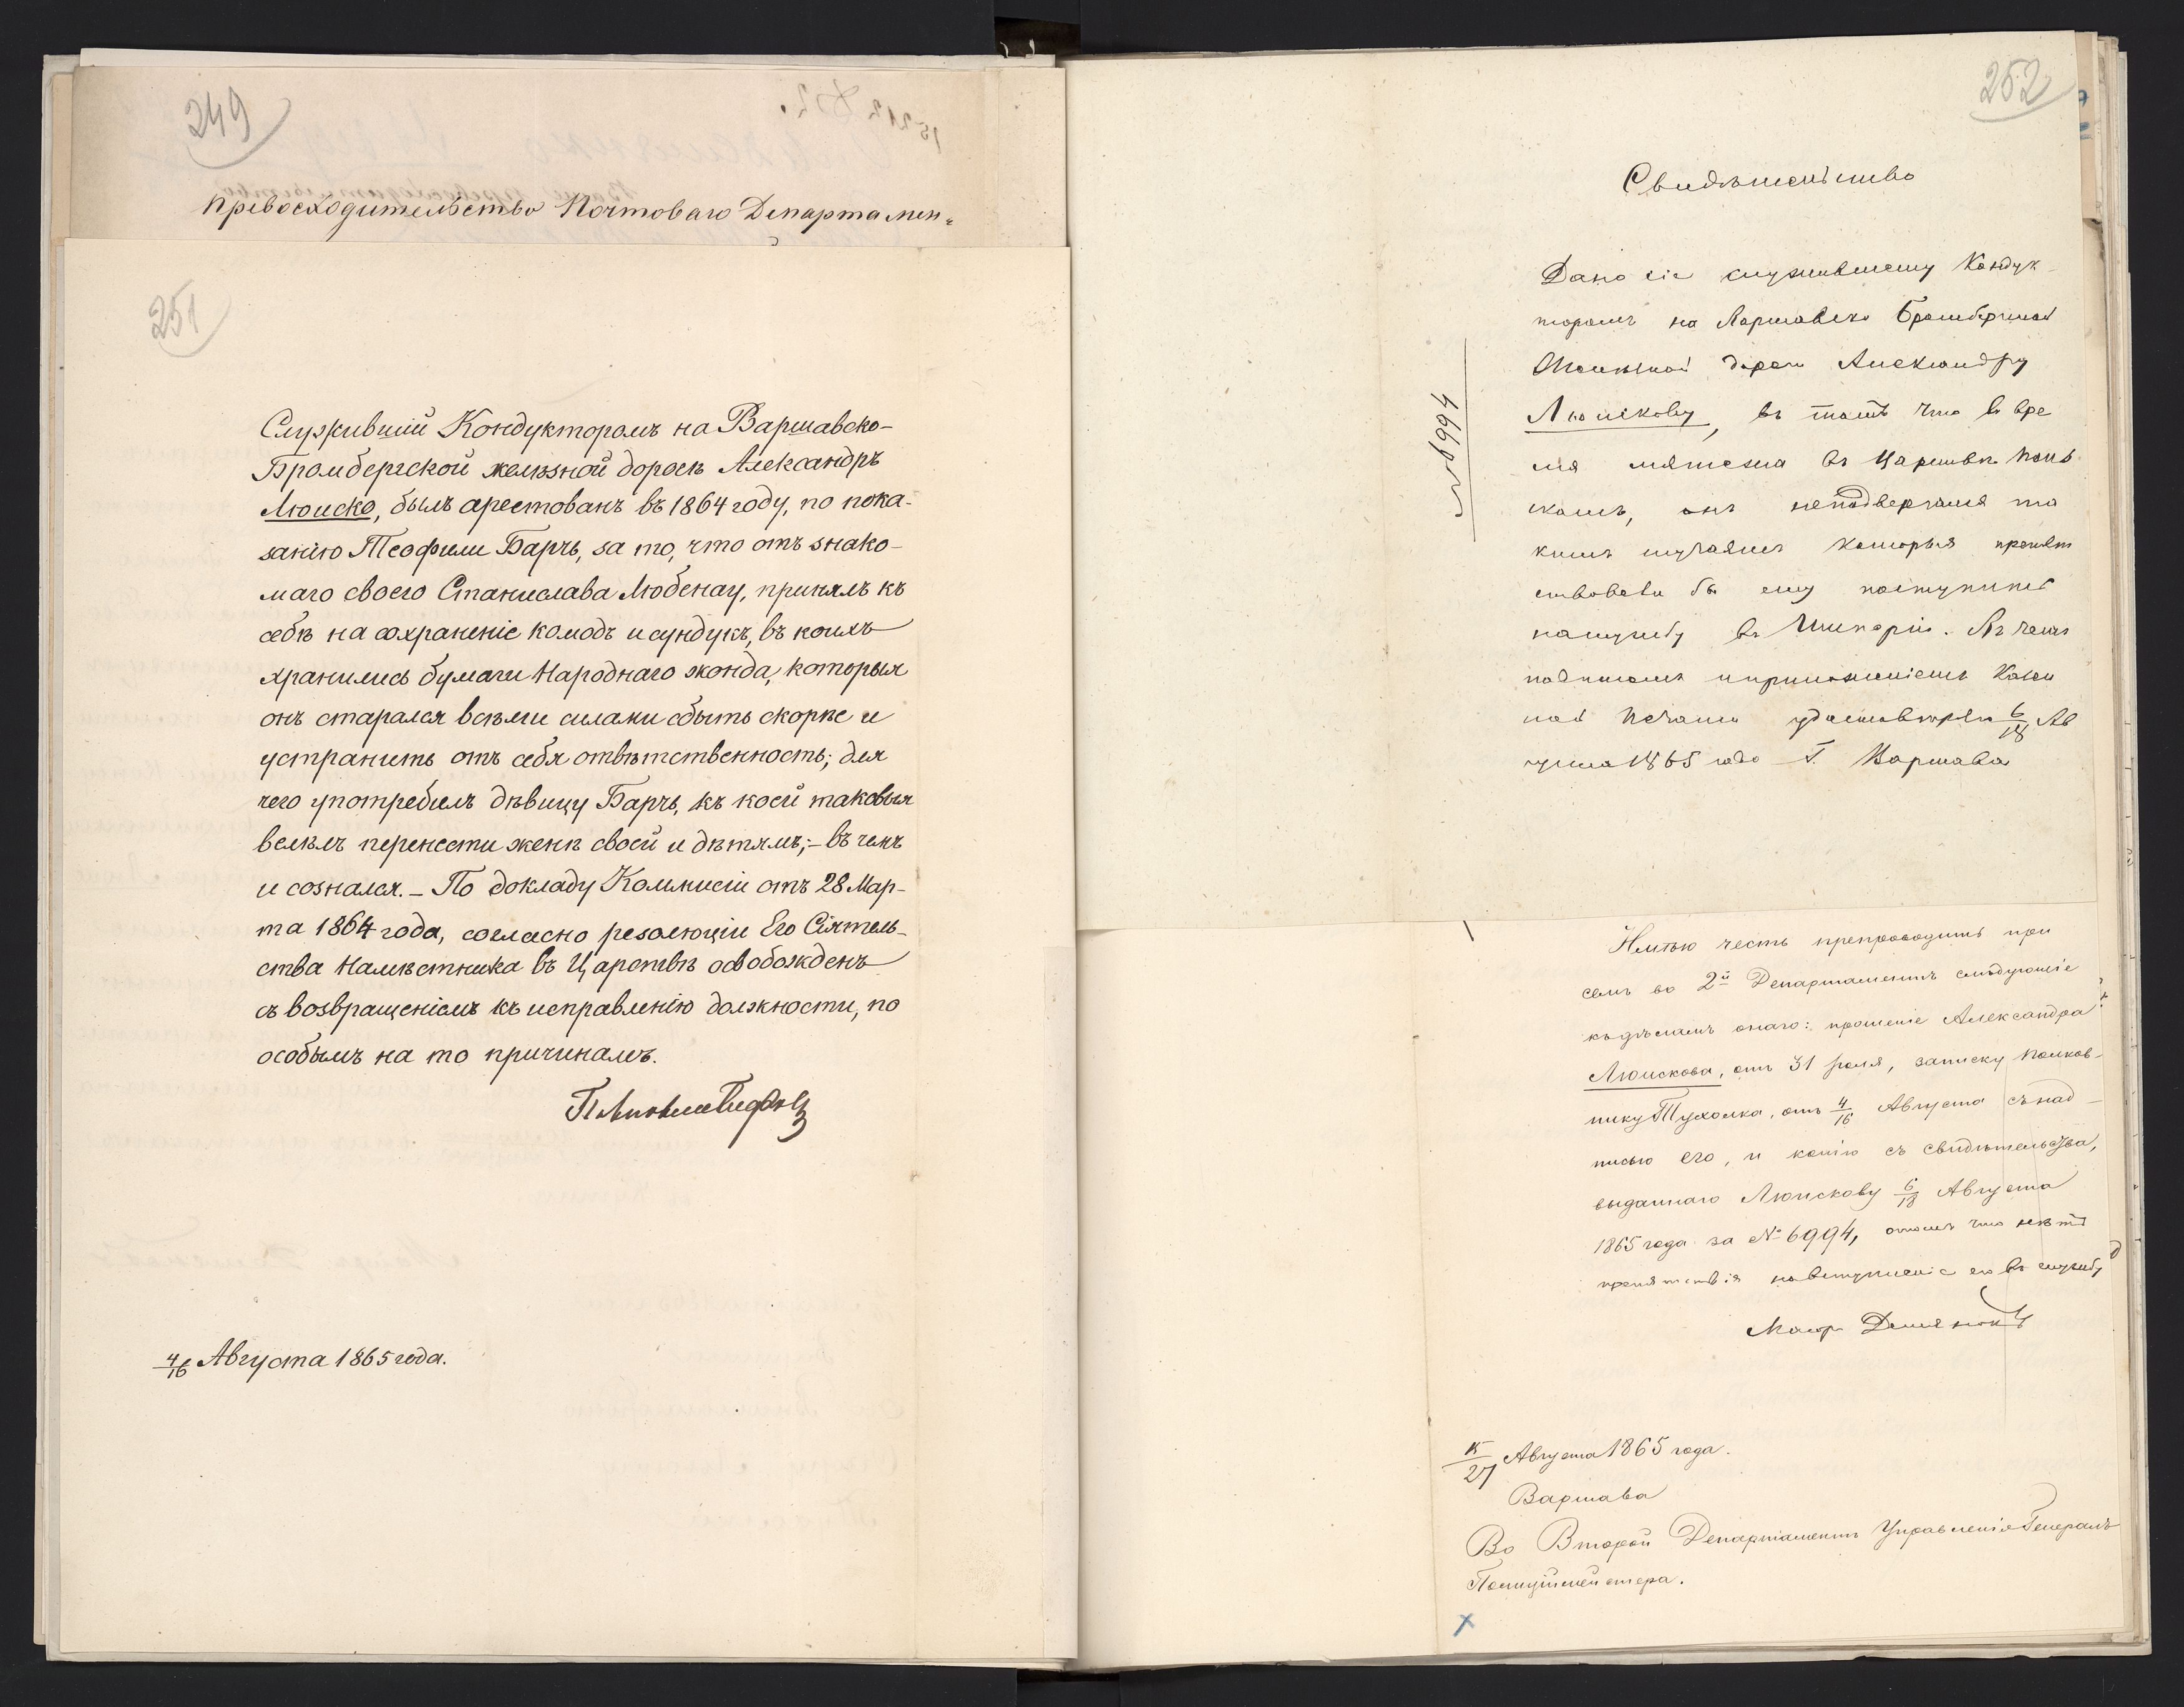 249
превосходительство Почтоваго Департамен=
251
Служившій Кондукторомъ на Варшавско-
Бромбергской желѣзной дорогѣ Александръ
Люиско, былъ арестованъ въ 1864 году, по пока-
занію Теофили Барчъ, за то, что отъ знако-
маго своего Станислава Любенау, принялъ къ
себѣ на сохраненіе комодъ и сундукъ, въ коихъ
хранились бумаги Народнаго жонда, которыя
онъ старался всѣми силами сбыть скорѣе и
устранить отъ себя отвѣтственность; для
чего употребилъ дѣвицу Барчъ, къ коей таковыя
велѣлъ перенести женѣ своей и дѣтямъ; – въ чемъ
и сознался. – По докладу Коммисіи отъ 28 Мар-
та 1864 года, согласно резолюціи Его Сіятель-
ства Намѣстника въ Царствѣ освобожденъ
съ возвращеніемъ къ исправленію должности, по
особымъ на то причинамъ.
4/16 Августа 1865 года.
252
Свидѣтельство
№ 6994
Дано сіе служившему Кондук-
торомъ на Варшавско Бромбергской
Желѣзной дороги Александру
Люискову, въ томъ что во вре
мя мятежа въ Царствѣ Поль
скомъ, онъ неподвергался та
кимъ случаямъ которыя препят
ствовали бы ему поступить
наслужбу въ Имперіи. Въ чемъ
подписомъ иприложеніемъ Казен
ной печати удостовѣряю 6/18 Ав
густа 1865 года Г. Варшава
Имѣю честь препроводить при
семъ во 2й Департаментъ слѣдующіе
къдѣламъ онаго: прошеніе Александра
Люискова, отъ 31 Іюля, записку Полков-
нику Тухолка, отъ 4/16 Августа съ над-
писью его, и копію съ свидѣтельства,
выданнаго Люискову 6/18 Августа
1865 года за № 6994, отомъ что нѣтъ
препятствія навступленіе его въ службу
Маіоръ
15/27 Августа 1865 года.
Варшава
Во Второй Департаментъ Управленія Генералъ
Полицiймейстера.